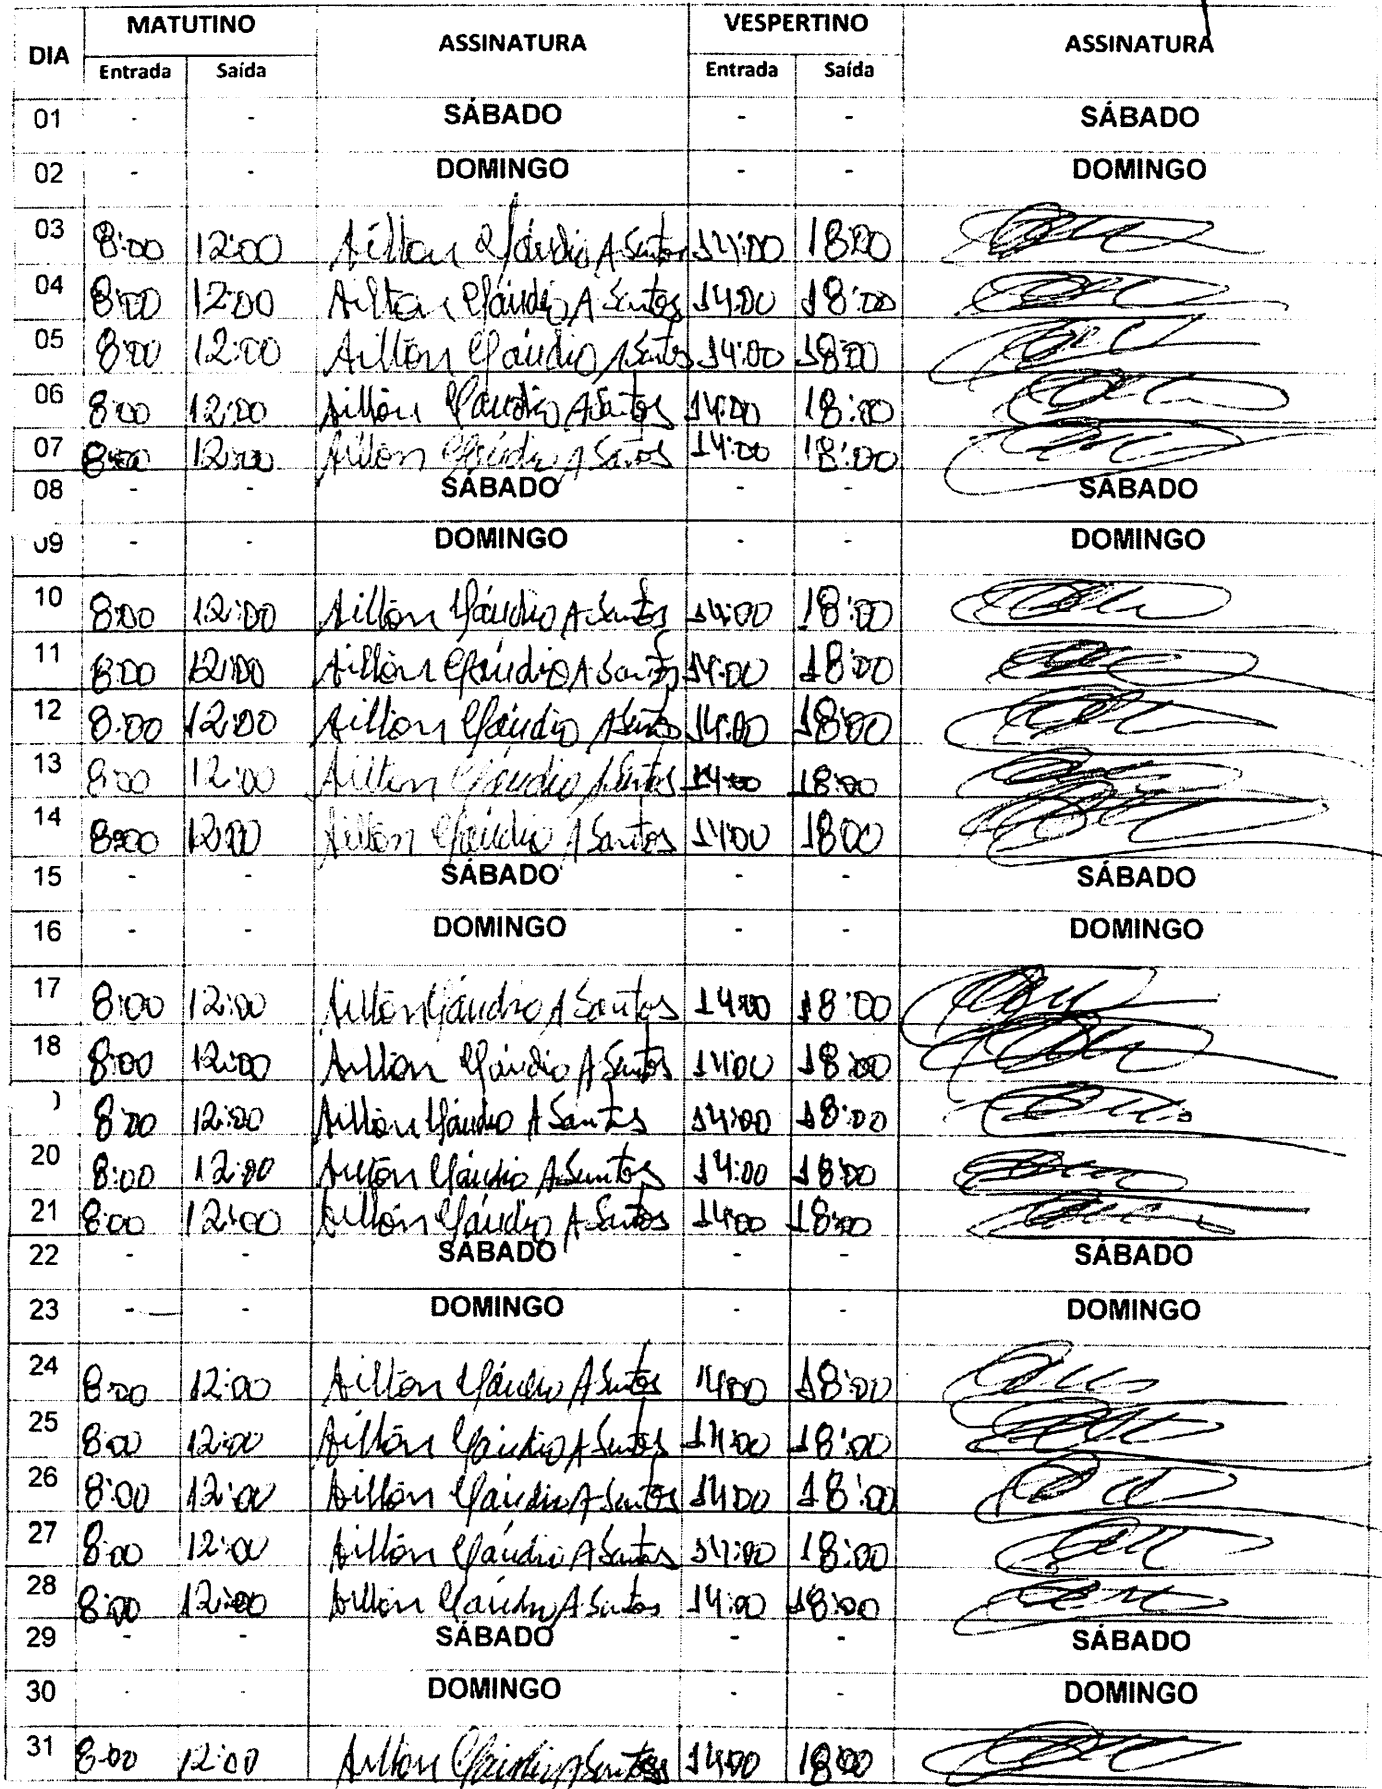 DIA MATUTINO ASSINATURA VESPERTINO ASSINATURA
Entrada Saída Entrada Saída
01 - - SÁBADO - - SÁBADO
02 - - DOMINGO - - DOMINGO
03 8:00 12:00 Ailton Cláudio A Santos 14:00 18:00
04 8:00 12:00 Ailton Cláudio A Santos 14:00 18:00
05 8:00 12:00 Ailton Cláudio A Santos 14:00 18:00
06 8:00 12:00 Ailton Cláudio A Santos 14:00 18:00
07 8:00 12:00 Ailton Cláudio A Santos 14:00 18:00
08 - - SÁBADO - - SÁBADO
09 - - DOMINGO - - DOMINGO
10 8:00 12:00 Ailton Cláudio A Santos 14:00 18:00
11 8:00 12:00 Ailton Cláudio A Santos 14:00 18:00
12 8:00 12:00 Ailton Cláudio A Santos 14:00 18:00
13 8:00 12:00 Ailton Cláudio A Santos 14:00 18:00
14 8:00 12:00 Ailton Cláudio A Santos 14:00 18:00
15 - - SÁBADO - - SÁBADO
16 - - DOMINGO - - DOMINGO
17 8:00 12:00 Ailton Cláudio A Santos 14:00 18:00
18 8:00 12:00 Ailton Cláudio A Santos 14:00 18:00
8:00 12:00 Ailton Cláudio A Santos 14:00 18:00
20 8:00 12:00 Ailton Cláudio A Santos 14:00 18:00
21 8:00 12:00 Ailton Cláudio A Santos 14:00 18:00
22 - - SÁBADO - - SÁBADO
23 - - DOMINGO - - DOMINGO
24 8:00 12:00 Ailton Cláudio A Santos 14:00 18:00
25 8:00 12:00 Ailton Cláudio A Santos 14:00 18:00
26 8:00 12:00 Ailton Cláudio A Santos 14:00 18:00
27 8:00 12:00 Ailton Cláudio A Santos 14:00 18:00
28 8:00 12:00 Ailton Cláudio A Santos 14:00 18:00
29 - - SÁBADO - - SÁBADO
30 - - DOMINGO - - DOMINGO
31 8:00 12:00 Ailton Cláudio A Santos 14:00 18:00